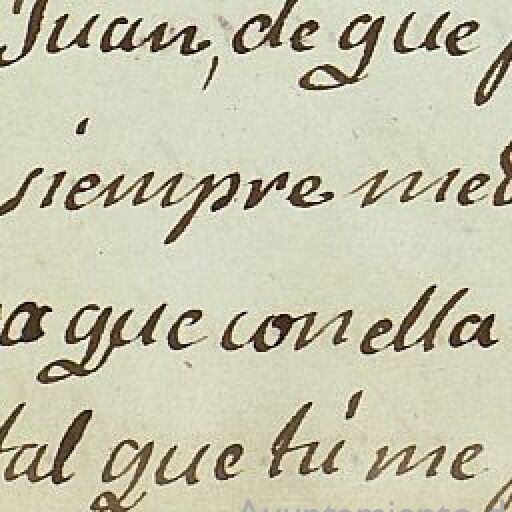 Juan, de que
siempre me
que con ella
tal que tú me
Ayuntamiento d